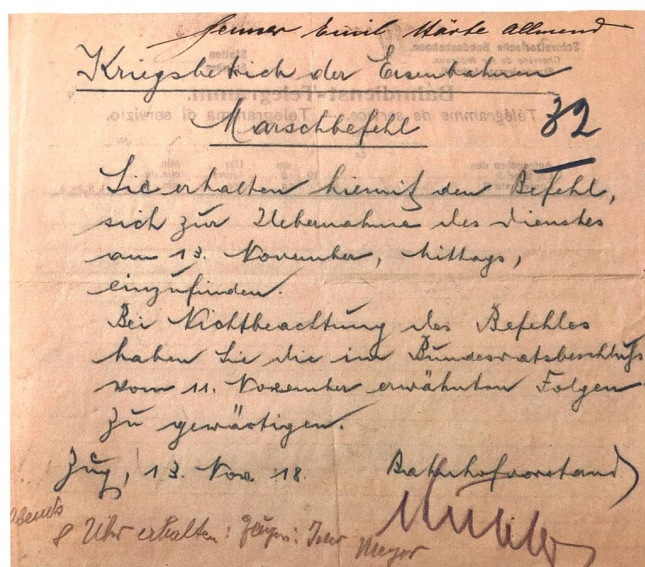 Jenner Emil Wärter Allmend
Kriegsbetrieb der Eisenbahnen
Marschbefehl 32
Sie erhalten hiermit den Befehl,
sich zur Uebernahme des Dienstes
am 13. November, Mittags,
einzufinden.
Bei Nichtbeachtung des Befehles
haben Sie die im Bundesratsbeschluss
vom 11. November erwähnten Folgen
zu gewärtigen.
Zug, 13. Nov. 18. Bahnhofvorstand
Abends
8 Uhr erhalten: Zeugen: Meyer